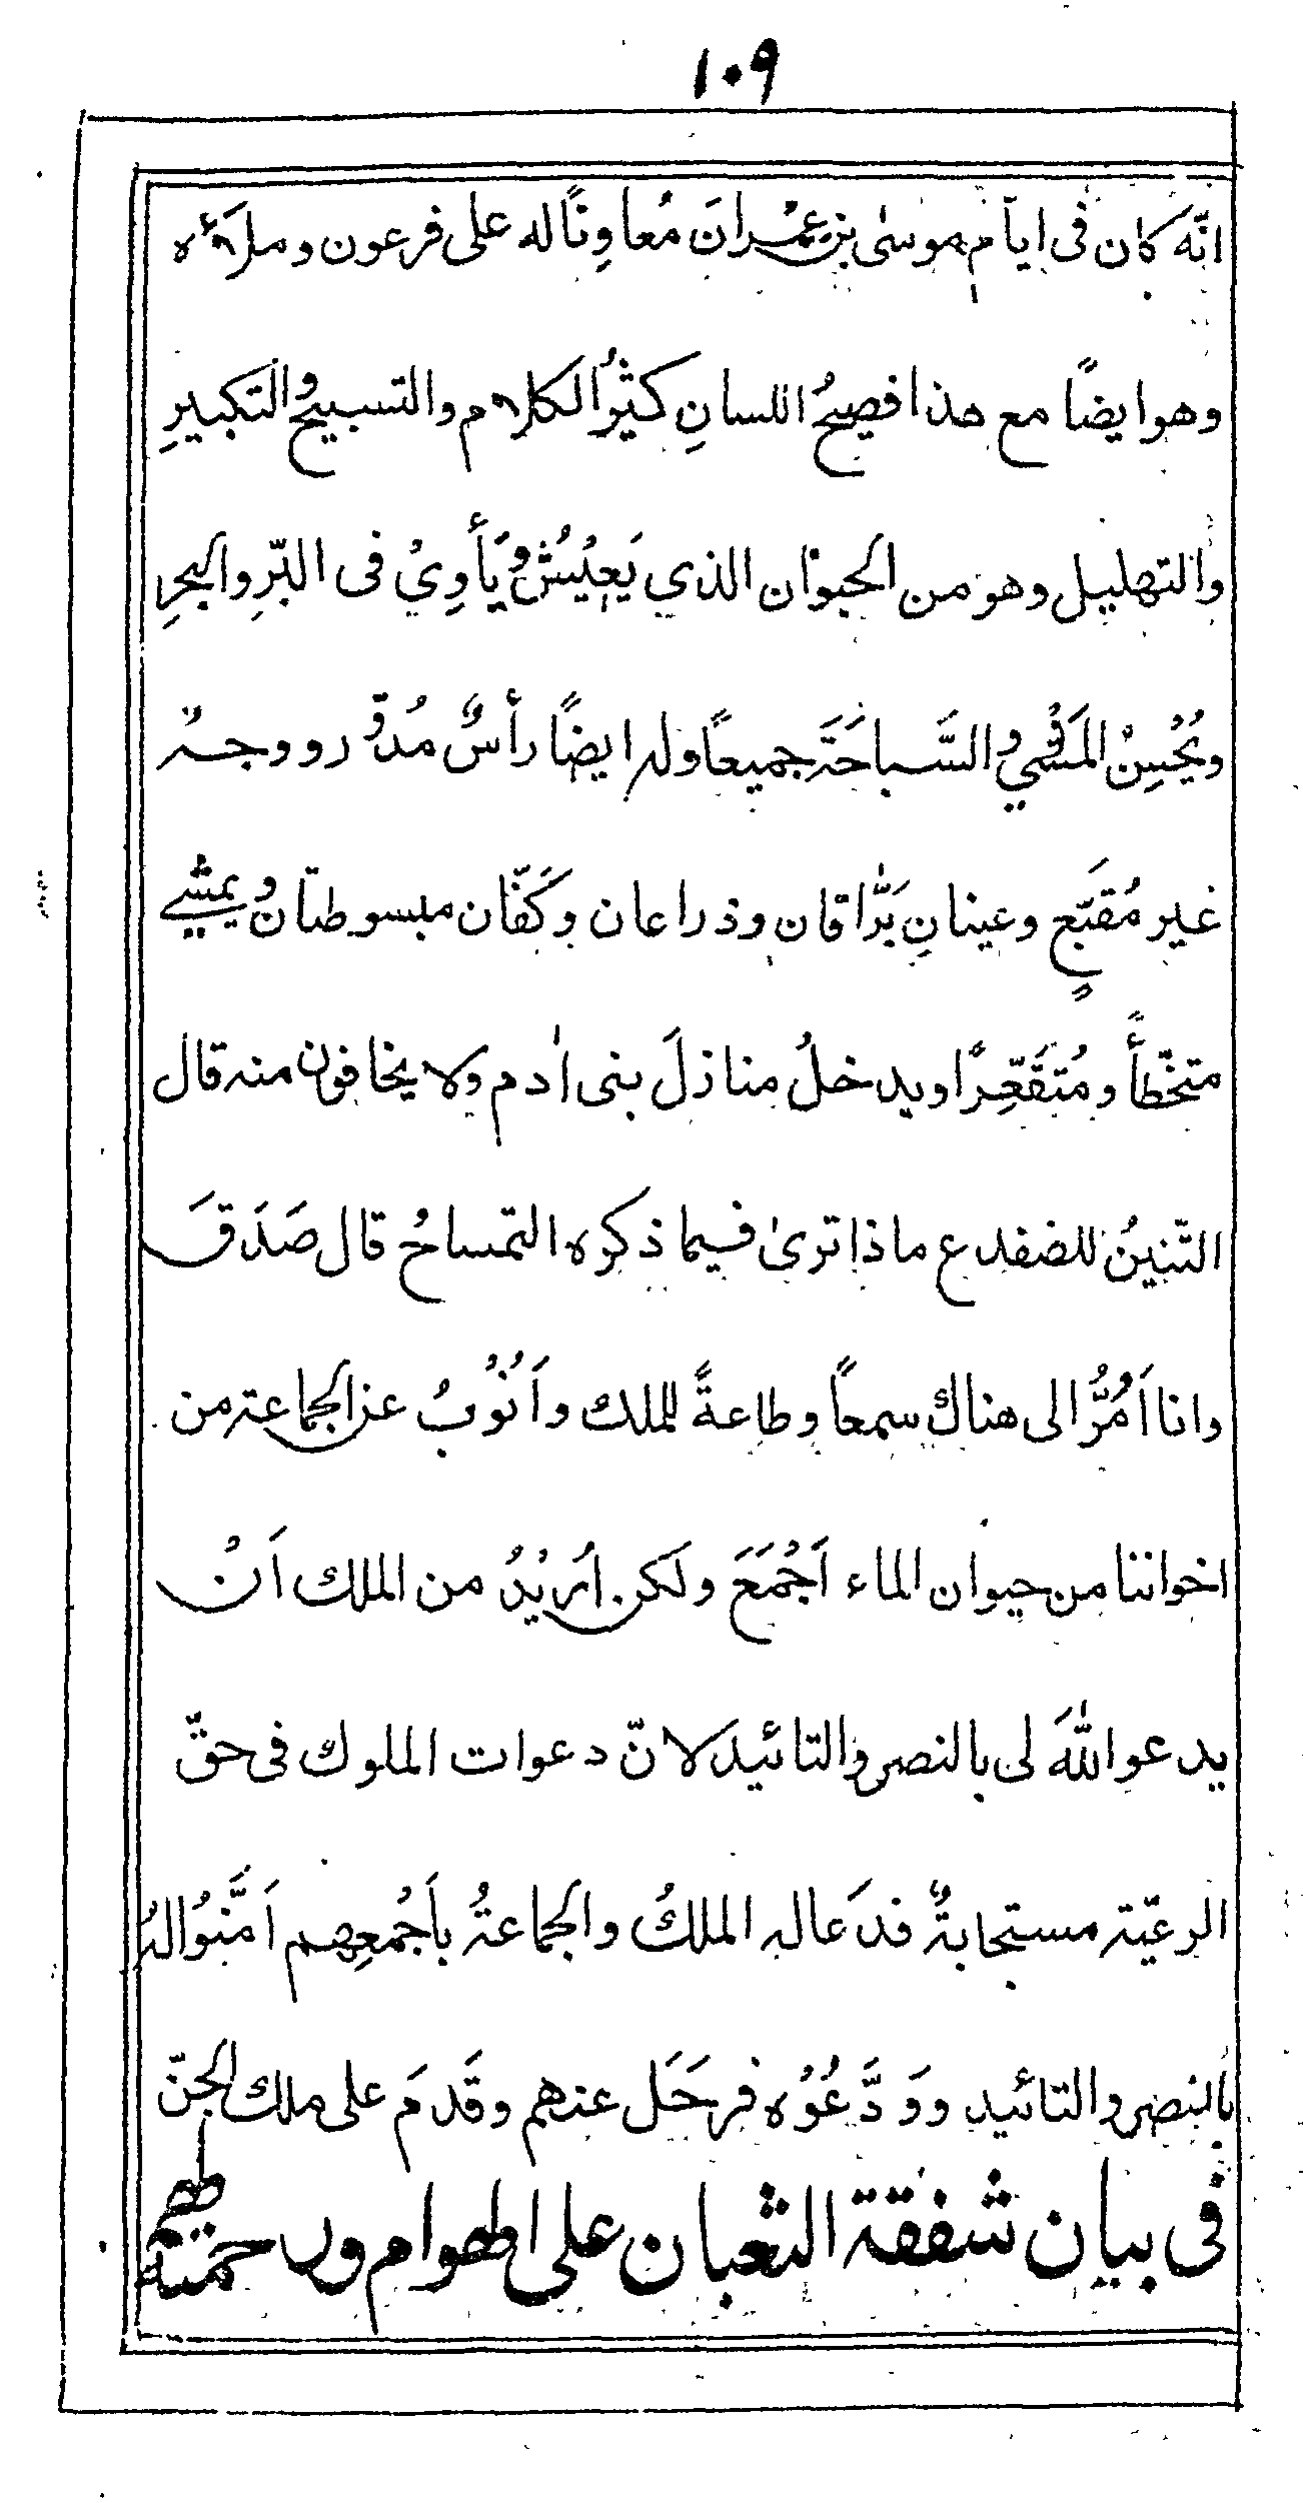 ١٠٩
انّه كان فى ايام موسىٰ بن عِمْرانَ مُعاوِنًا له على فرعون وملَائه
وهو ايضًا مع هذا فصيحُ اللسانِ كثيرُ الكلام والتسبيح والتكبيرِ
والتهليل وهو من الحيوان الذي يَعِيْشُ ويَأوِيْ فى البّرِ والبحرِ
ويُحْسِنُ المَشْيَ والسَّباحَةَ جميعاً وله ايضًا رأسٌ مُدوّر ووجهٌ
غير مُقبَّعٍ وعينانِ بَرّاقان وذراعان وكَفّان مبسوطتان ويمشي
متخطّأً ومُتَقَعِّرًا ويدخلُ منازلَ بنى اٰدم ولا يخافون منه قال
التّنينُ للضفدع ماذا ترىٰ فيما ذكره التمساحُ قال صَدَقَ
وانا اَمُرُّ الى هناك سمعاً وطاعةً للملك واَنُوْبُ عن الجماعة من
اخواننا من حيوان الماء اَجْمَعَ ولكن اُرِيْدُ من الملك اَنْ
يدعو اللّٰهَ لى بالنصر والتائيد لانّ دعوات الملوك فى حقّ
الرعيّة مستجابةٌ فدَعا له الملكُ والجماعةُ بأَجْمعِهم اَمَّنُوا لهُ
بالنصر والتائيد ووَدَّعُوْه فرحَل عنهم وقَدمَ على ملك الجنّ
فى بيان شفقة الثعبان على الهوام ورحمته لهم